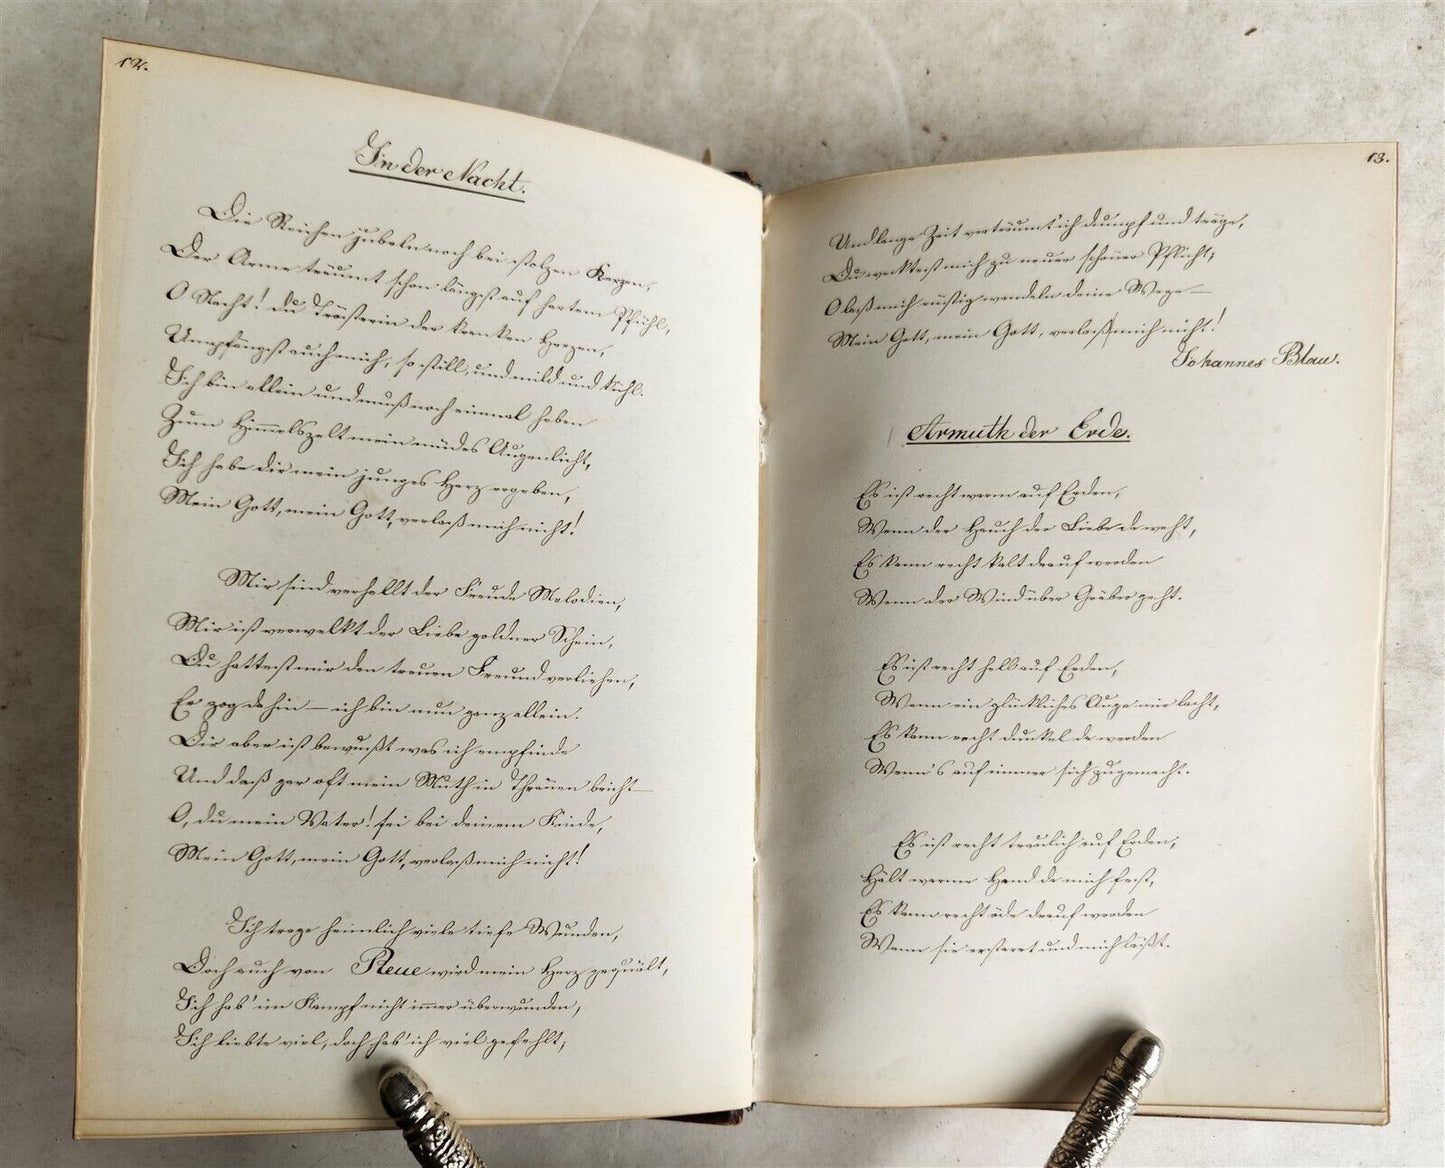 12.
In der Nacht.
Die Reichen jubeln noch bei stolzen Kerzen,
Der Arme träumt schon längst auf hartem Pfühl,
O Nacht! du Trösterin der kranken Herzen,
Umpfängst auch mich, so still, und mild und kühl.
Ich bin allein und muß noch einmal heben
Zum Himmelszelt mein müdes Augenlicht,
Ich habe dir mein junges Herz ergeben,
Mein Gott, mein Gott, verlaß mich nicht!
Mir sind verhallt der Freude Melodien,
Mir ist verwelkt der Liebe goldner Schein,
Du hattest mir den treuen Freund verliehen,
Er zog dahin — ich bin nun ganz allein.
Dir aber ist bewußt was ich empfinde
Und daß gar oft mein Muth in Thränen bricht —
O, du mein Vater! sei bei deinem Kinde,
Mein Gott, mein Gott, verlaß mich nicht!
Ich trage heimlich viele tiefe Wunden,
Doch auch von Reue wird mein Herz gequält,
Ich hab' im Kampf nicht immer überwunden,
Ich liebte viel, doch hab' ich viel gefehlt,
13.
Und lange Zeit verträumt' ich dumpf und träge,
Du wecktest mich zu neuer schöner Pflicht,
O laß mich rüstig wandeln deine Wege —
Mein Gott, mein Gott, verlaß mich nicht!
Johannes Blau.
Armuth der Erde.
Es ist recht warm auf Erden,
Wenn der Hauch der Liebe da weht,
Es kann recht kalt drauf werden
Wenn der Wind über Gräber geht.
Es ist recht hell auf Erden,
Wenn ein glückliches Auge mir lacht,
Es kann recht dunkel da werden
Wenn's auf immer sich zugemacht.
Es ist recht traulich auf Erden,
Hält warme Hand da mich fest,
Es kann recht öde drauf werden
Wenn sie erstarrt und mich läßt.